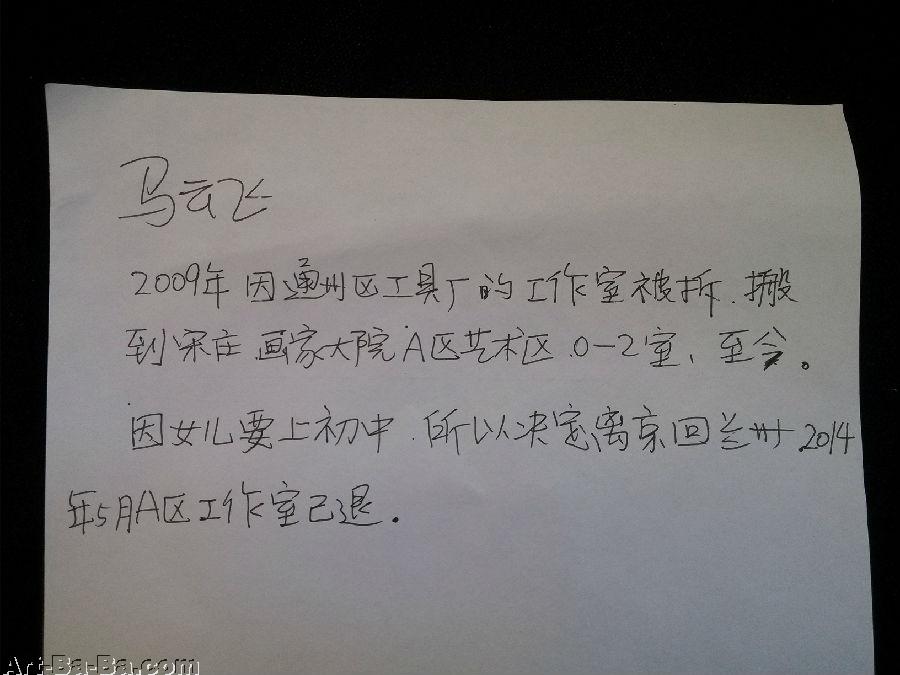 马云飞
2009年因通州区工具厂的工作室被拆.搬
到宋庄画家大院A区艺术区.0-2室、至今。
因女儿要上初中.所以决定离京回兰州.2014
年5月A区工作室已退.
Art-Ba-Ba.com